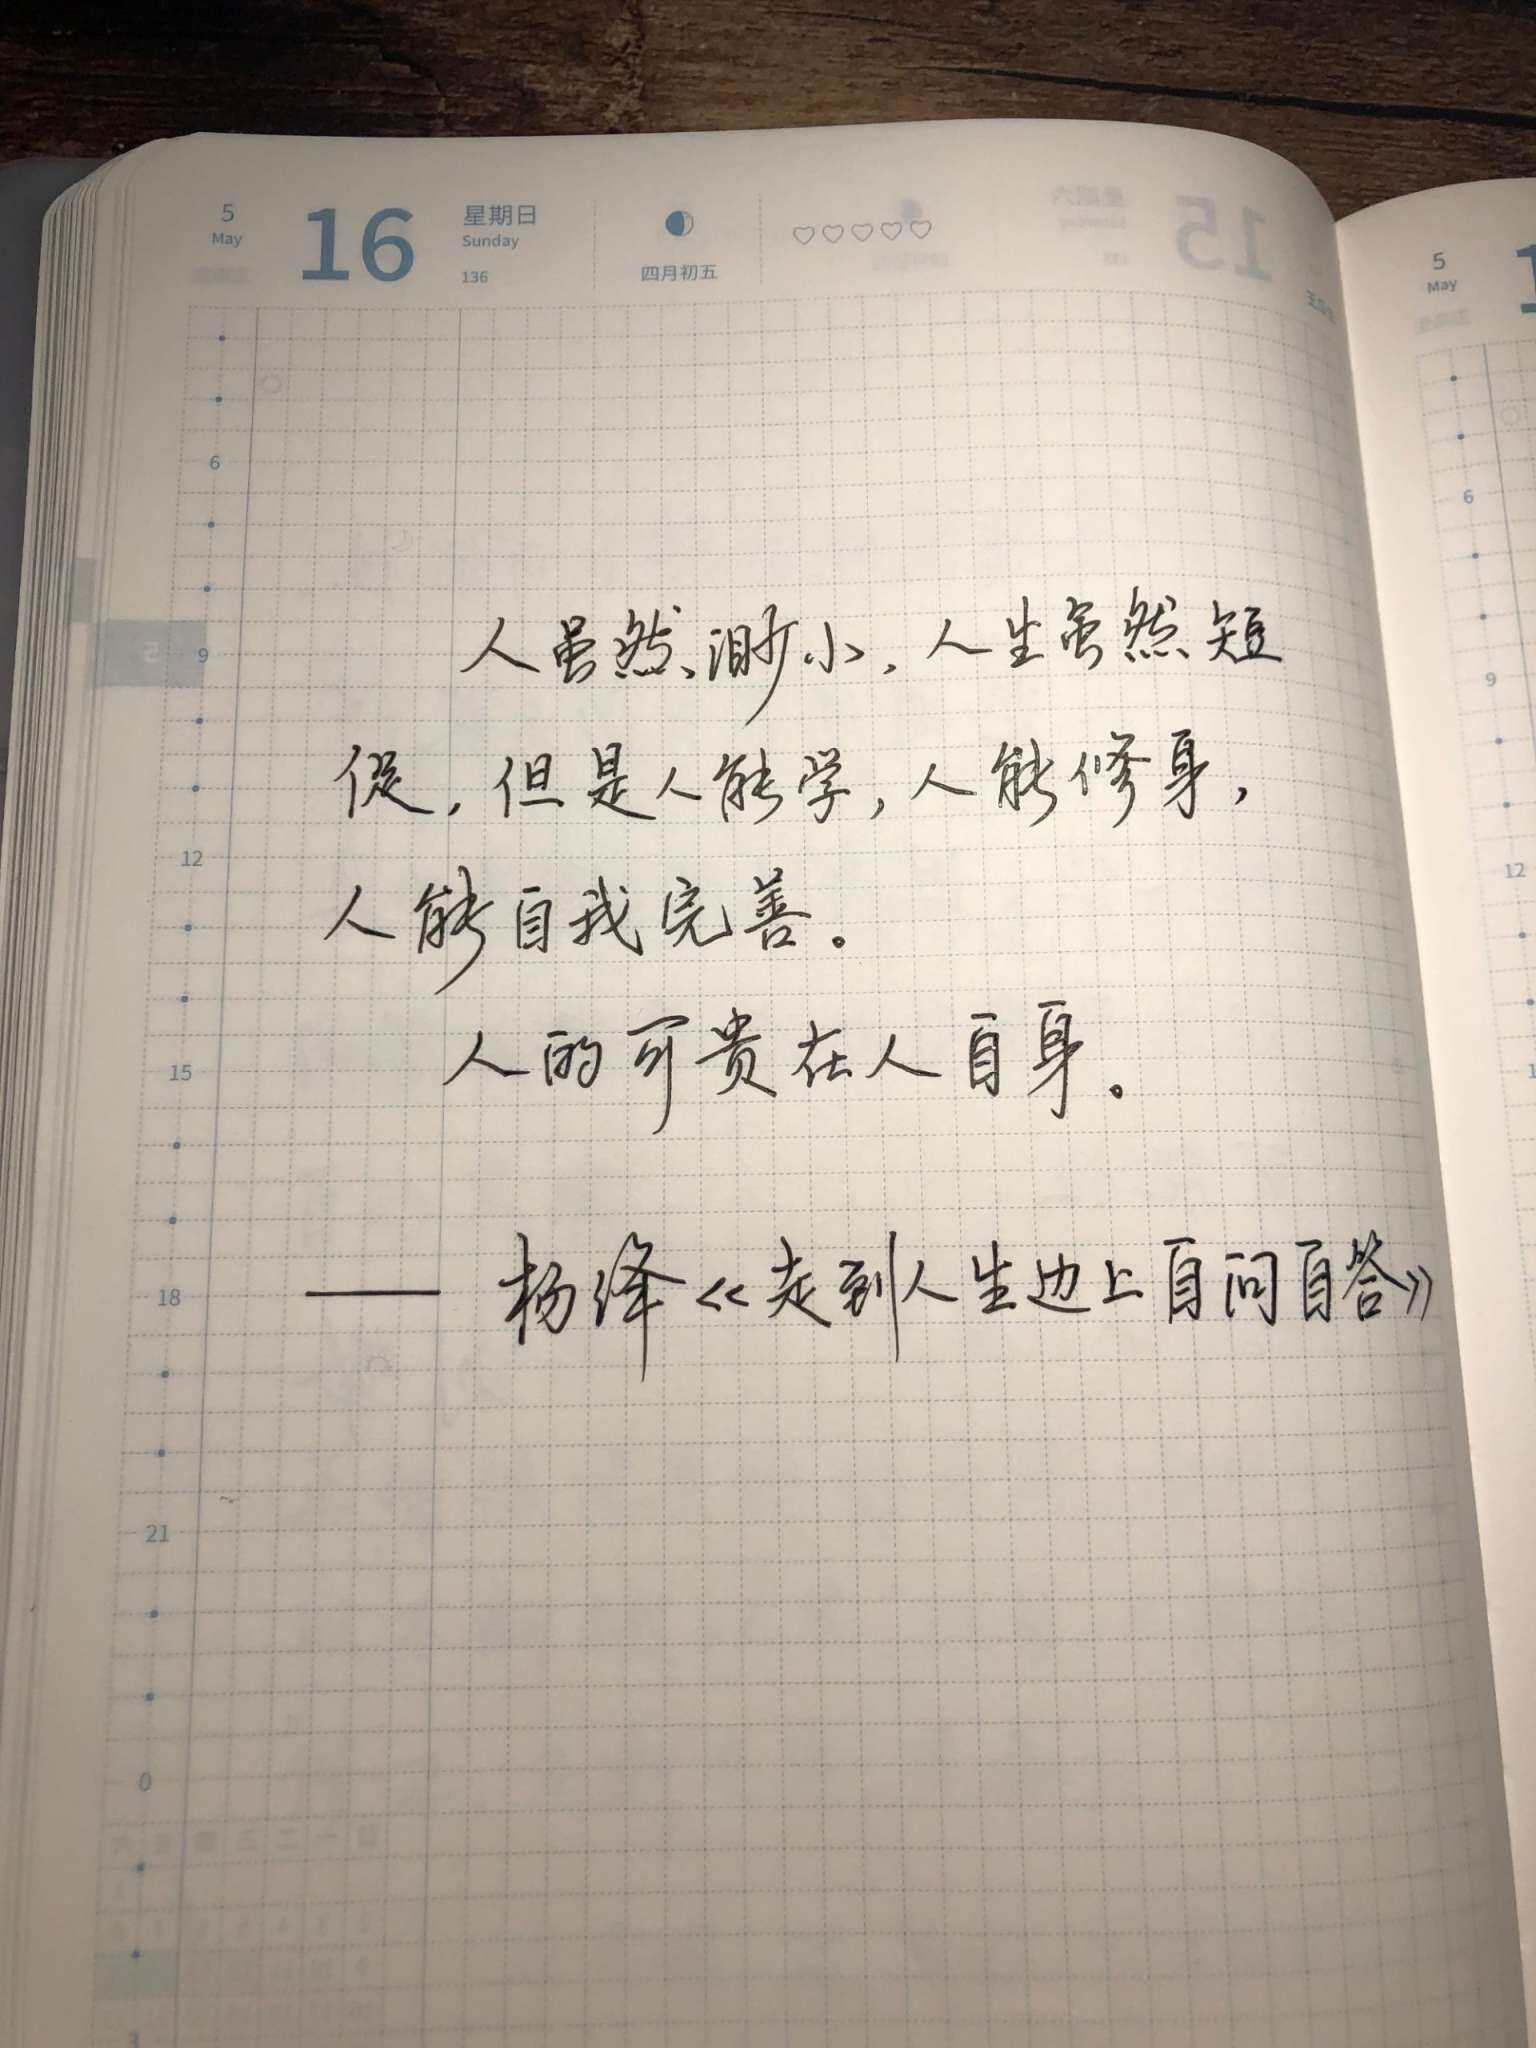 5
May
16
星期日
Sunday
136
四月初五
5
May
6
9
12
15
18
21
0
3
6
9
12
人虽然渺小，人生虽然短
促，但是人能学，人能修身，
人能自我完善。
人的可贵在人自身。
—— 杨绛《走到人生边上自问自答》